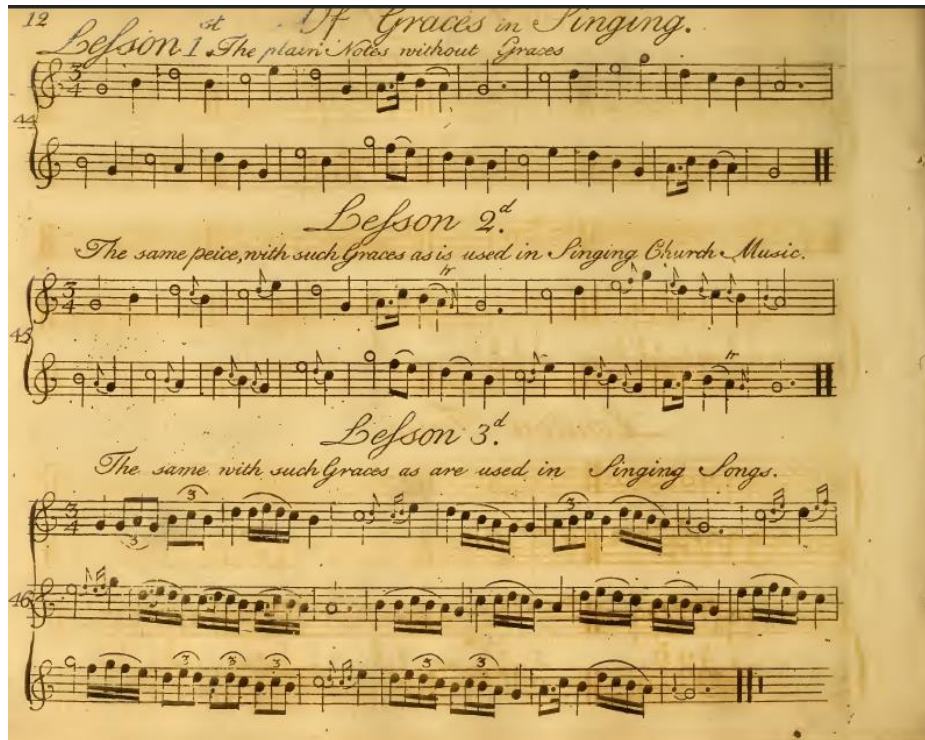 12 Of Graces in Singing.
Leſson 1.st The plain Notes without Graces
3
4
44
Leſson 2.d
The same peice, with such Graces as is used in Singing Church Music.
tr
3
4
45
tr
Leſson 3.d
The same with such Graces as are used in Singing Songs.
3 3
4 3 3
46
3 3 3 3 3